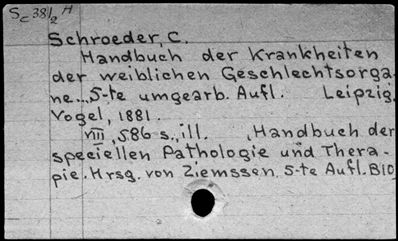 Sc 38/2 H
Schroeder, C.
Handbuch der Krankheiten
der weiblichen Geschlechtsorga-
ne... 5-te umgearb. Aufl. Leipzig.
Vogel, 1881.
VIII, 586 s., ill. (Handbuch der
speciellen Pathologie und Thera-
pie. Hrsg. von Ziemssen. 5-te Aufl. B10